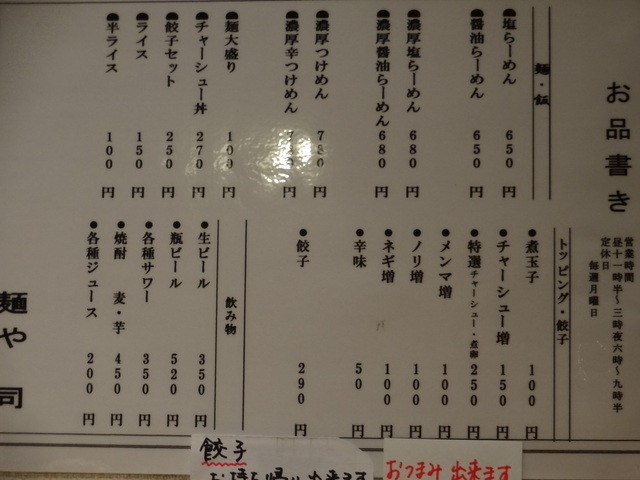 お品書き
営業時間
昼十一時半～三時夜六時～九時半
定休日
毎週月曜日
麺・飯
●塩らーめん 650円
●醤油らーめん 650円
●濃厚塩らーめん 680円
●濃厚醤油らーめん 680円
●濃厚つけめん 780円
●濃厚辛つけめん 円
●麺大盛り 100円
●チャーシュー丼 270円
●餃子セット 250円
●ライス 150円
●半ライス 100円
トッピング・餃子
●煮玉子 100円
●チャーシュー増 150円
●特選チャーシュー・煮卵 250円
●メンマ増 100円
●ノリ増 100円
●ネギ増 100円
●辛味 50円
●餃子 290円
飲み物
●生ビール 350円
●瓶ビール 520円
●各種サワー 350円
●焼酎 麦・芋 450円
●各種ジュース 200円
麺や 司
餃子
お持ち帰り出来ます
おつまみ出来ます